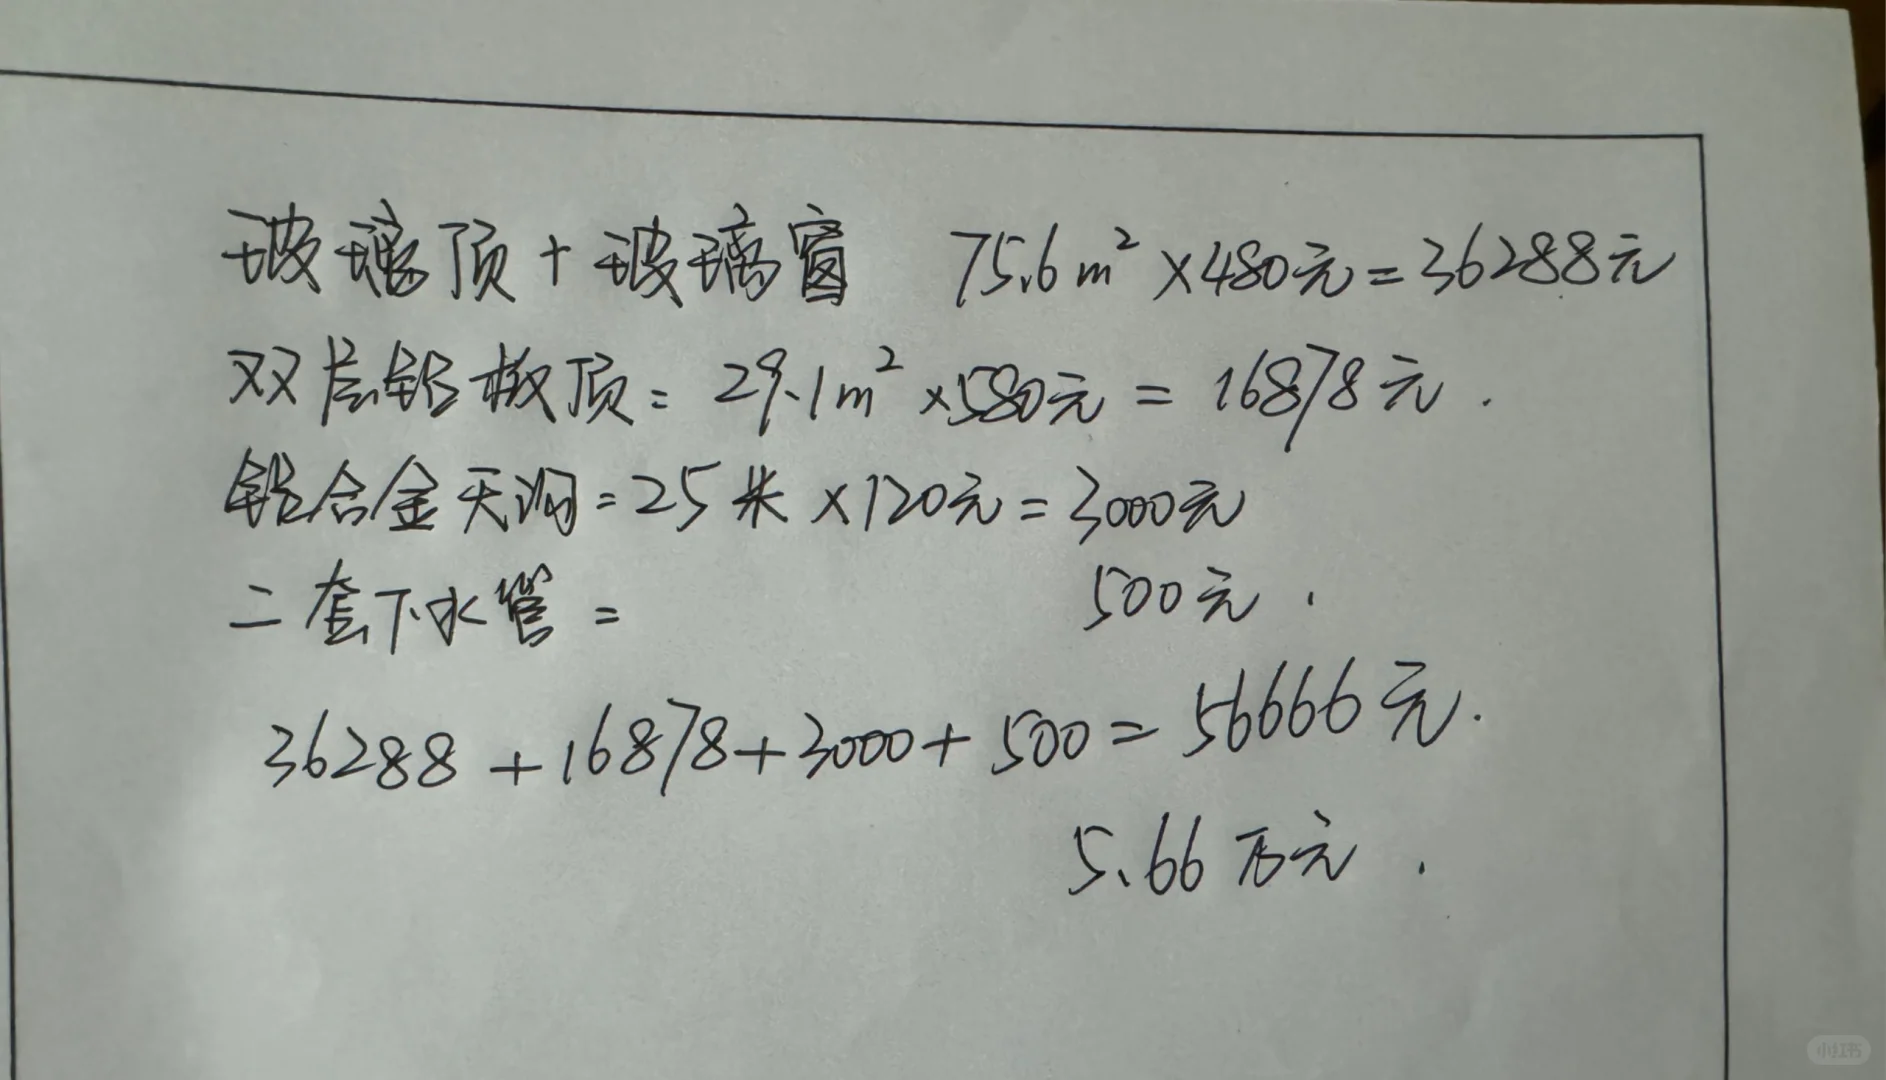 玻璃顶+玻璃窗 75.6m²×480元=36288元
双层铝板顶=29.1m²×580元=16878元.
铝合金天沟=25米×120元=3000元
二套下水管= 500元.
36288+16878+3000+500=56666元.
5.66万元.
小红书